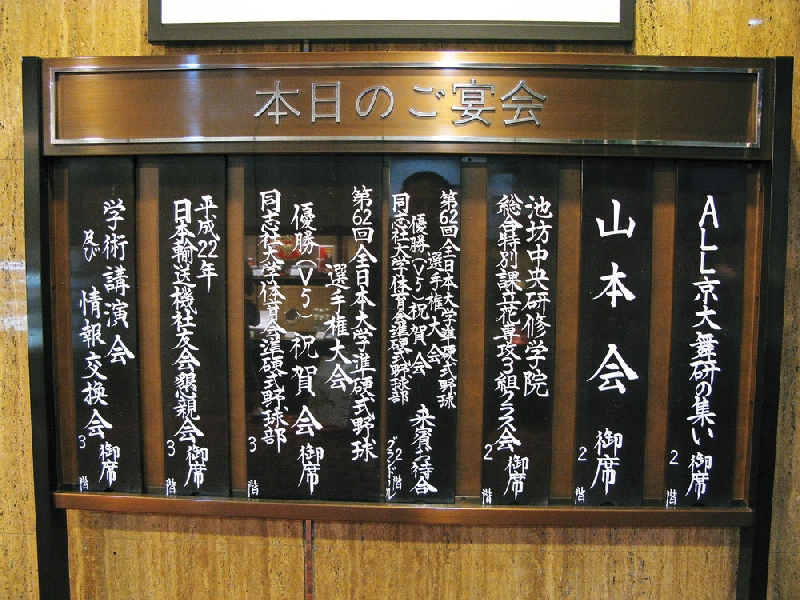 本日のご宴会
ALL京大舞研の集い 御席
2階
山本会 御席
2階
池坊中央研修学院
総合特別課立花専攻3組クラス会 御席
2階
第62回全日本大学準硬式野球
選手権大会
優勝(V5)祝賀会 来賓お待合
同志社大学体育会準硬式野球部
2階
グランドホール
第62回全日本大学準硬式野球
選手権大会
優勝(V5)祝賀会 御席
同志社大学体育会準硬式野球部
3階
平成22年
日本輸送機社友会懇親会 御席
3階
学術講演会
及び 情報交換会 御席
3階